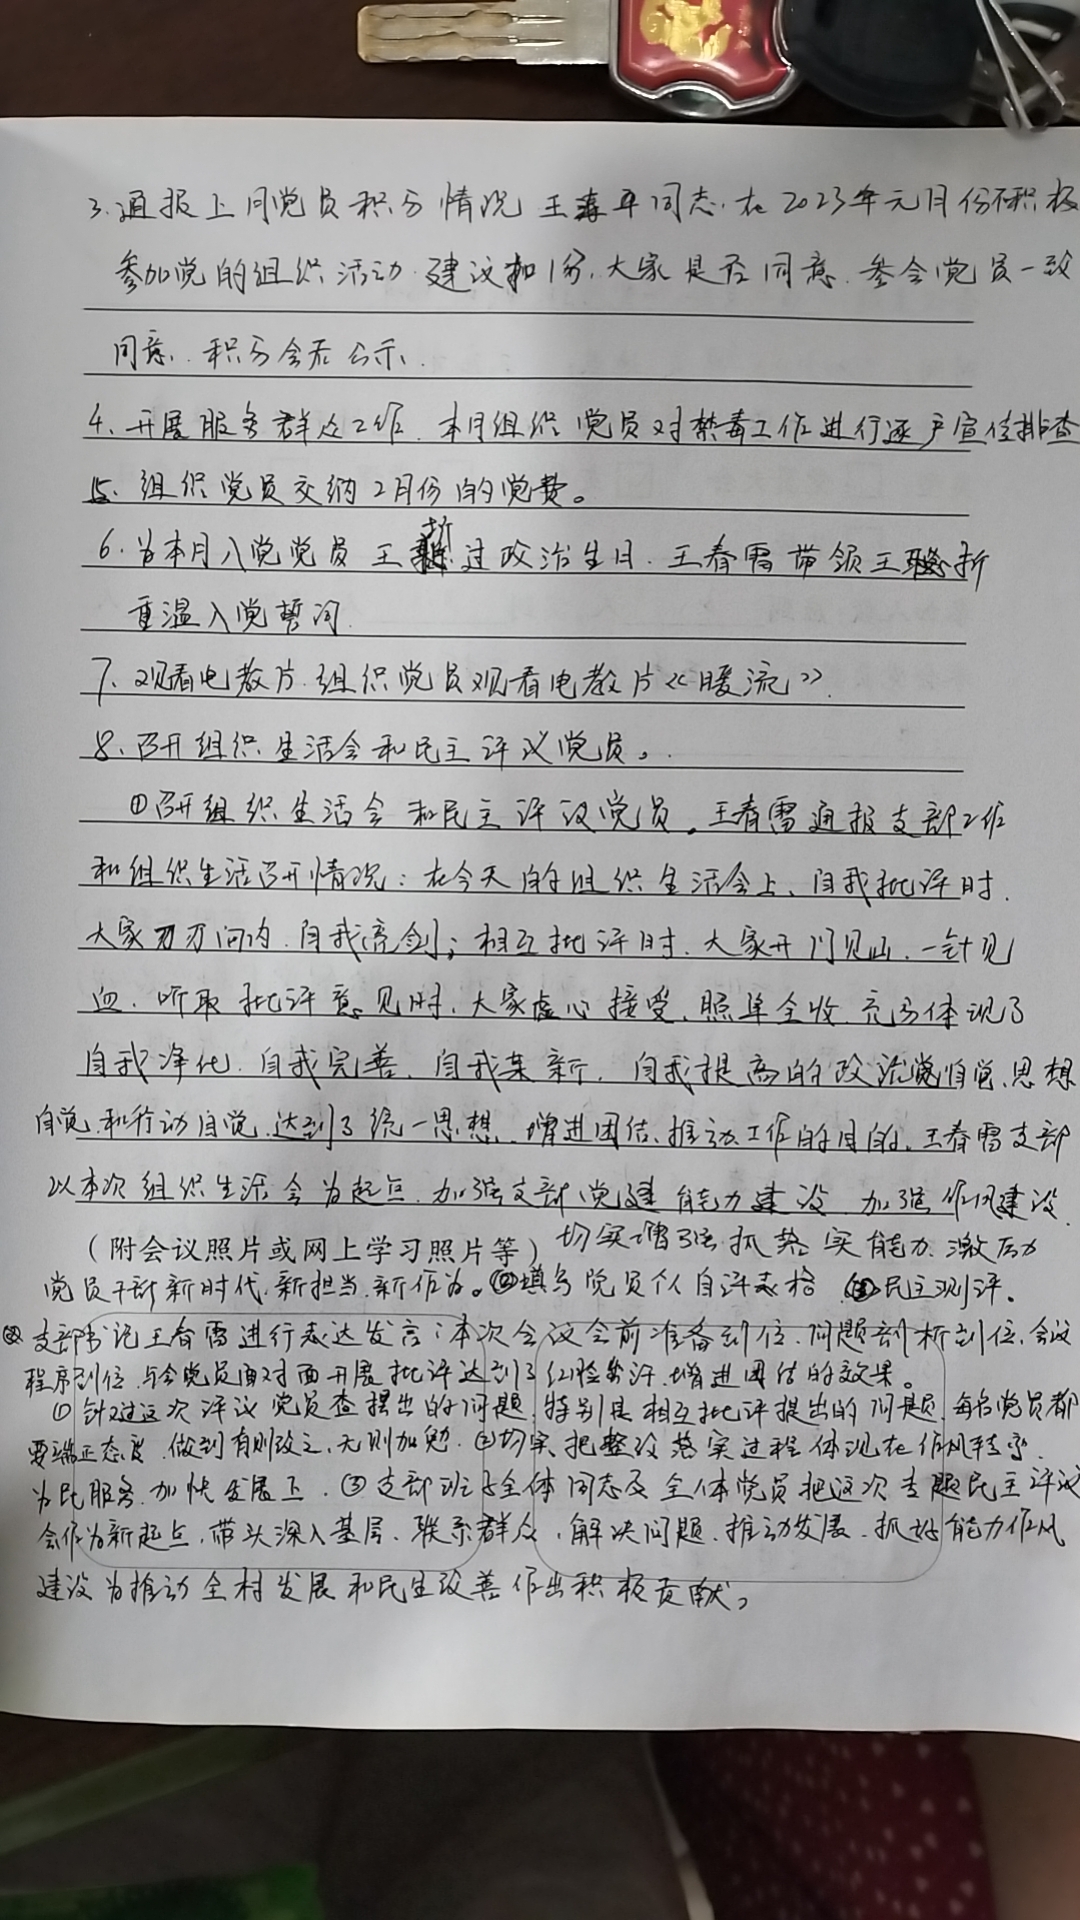 3.通报上月党员积分情况 王春平同志.在2023年元月份不积极
参加党的组织活动.建议扣1分.大家是否同意.参会党员一致
同意.积分会后公示.
4.开展服务群众工作.本月组织党员对禁毒工作进行逐户宣传排查
5.组织党员交纳2月份的党费。
6.为本月入党党员王 折 过政治生日.王春雷带领王 折
重温入党誓词.
7.观看电教片.组织党员观看电教片《暖流》.
8.召开组织生活会和民主评议党员。
①召开组织生活会和民主评议党员。王春雷通报支部工作
和组织生活召开情况:在今天的组织生活会上、自我批评时.
大家刀刃向内.自我亮剑;相互批评时.大家开门见山.一针见
血.听取批评意见时.大家虚心接受.照单全收.充分体现了
自我净化.自我完善.自我革新.自我提高的政治自觉.思想
自觉.和行动自觉.达到了统一思想.增进团结.推动工作的目的.王春雷支部
以本次组织生活会为起点.加强支部党建能力建设.加强作风建设.
(附会议照片或网上学习照片等) 切实增强抓落实能力.激历
党员干部新时代.新担当.新作为。②填写党员个人自评表格 ③民主测评.
支部书记王春雷进行表达发言:本次会议会前准备到位.问题剖析到位.会议
程序到位.与会党员面对面开展批评达到了红脸出汗.增进团结的效果。
①针对这次评议党员查摆出的问题.特别是相互批评提出的问题.每名党员都
要端正态度.做到有则改之.无则加勉.②切实把整改落实过程体现在作风转变.
为民服务.加快发展上.③支部班子全体同志及全体党员把这次专题民主评议
会作为新起点.带头深入基层.联系群众.解决问题.推动发展.抓好能力作风
建设为推动全村发展和民生改善作出积极贡献。